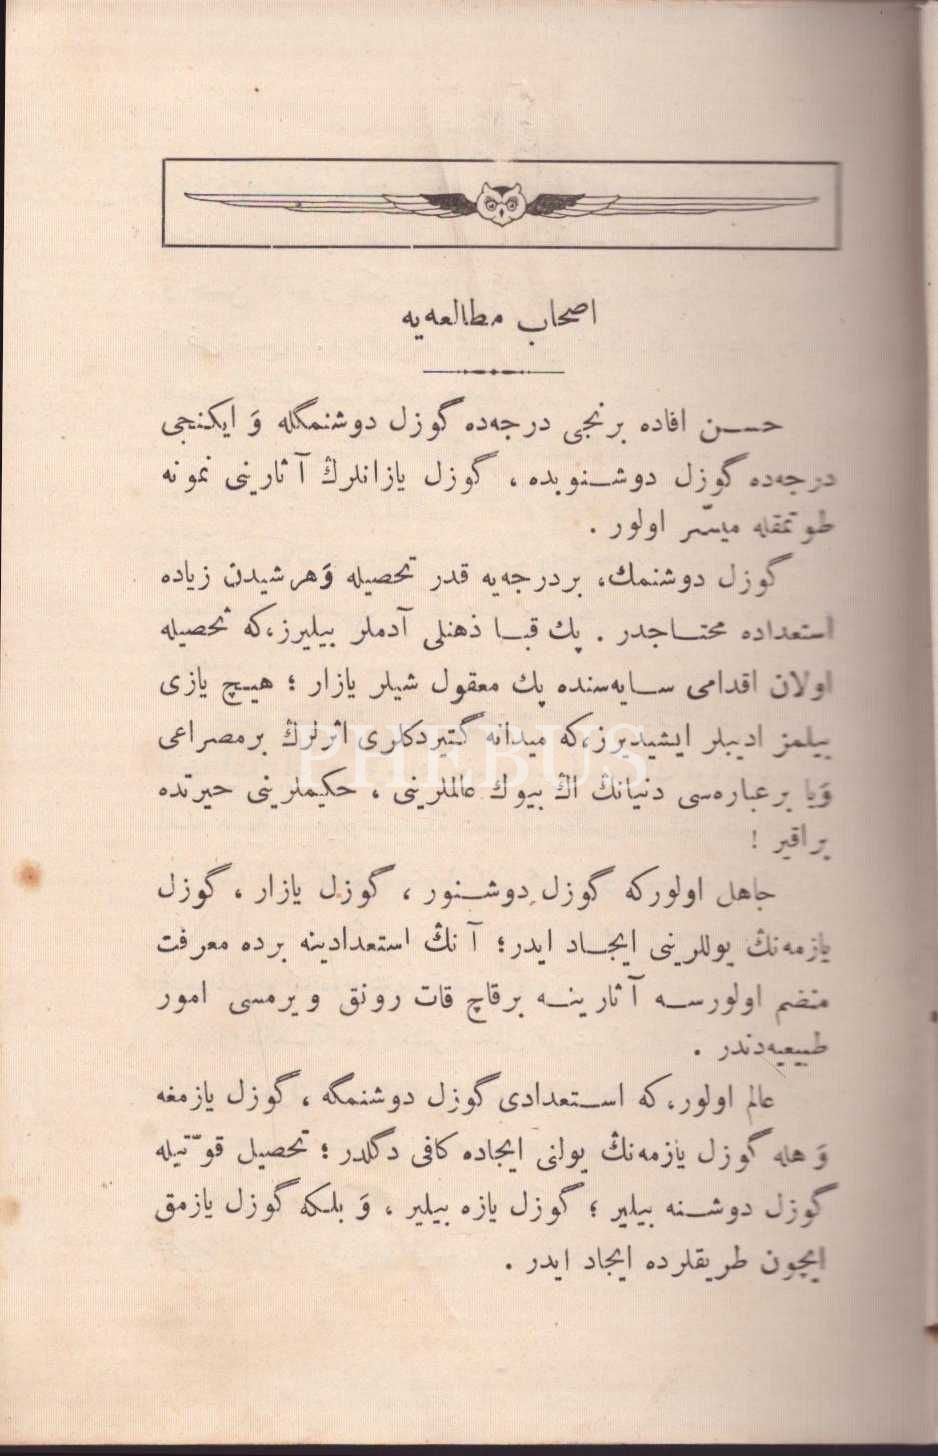 اصحاب مطالعه‌یه
حسن افاده برنجی درجه‌ده گوزل دوشنمگله وَ ایکنجی
درجه‌ده گوزل دوشنوبده ، گوزل یازانلرڭ آثارینی نمونه
طوتمقله میسّر اولور .
گوزل دوشنمك، بردرجه‌یه قدر تحصیله وَهرشیدن زیاده
استعداده محتاجدر . پك قبا ذهنلی آدملر بیلیرز،که تحصیله
اولان اقدامی سایه‌سنده پك معقول شیلر یازار ؛ هیچ یازی
بیلمز ادیبلر ایشیدیرز،که میدانه گتیردکلری اثرلرڭ برمصراعی
وَیا برعباره‌سی دنیانڭ اڭ بیوك عالملرینی ، حکیملرینی حیرتده
براقیر !
جاهل اولورکه گوزل دوشنور ، گوزل یازار ، گوزل
یازمه‌نڭ یوللرینی ایجاد ایدر؛ آنڭ استعدادینه برده معرفت
منضم اولورسه آثارینه برقاچ قات رونق ویرمسی امور
طبیعیه‌دندر .
عالم اولور،که استعدادی گوزل دوشنمگه ، گوزل یازمغه
وَ هله گوزل یازمه‌نڭ یولنی ایجاده کافی دگلدر ؛ تحصیل قوّتیله
گوزل دوشنه بیلیر ؛ گوزل یازه بیلیر ، وَ بلکه گوزل یازمق
ایچون طریقلرده ایجاد ایدر .
PHEBUS